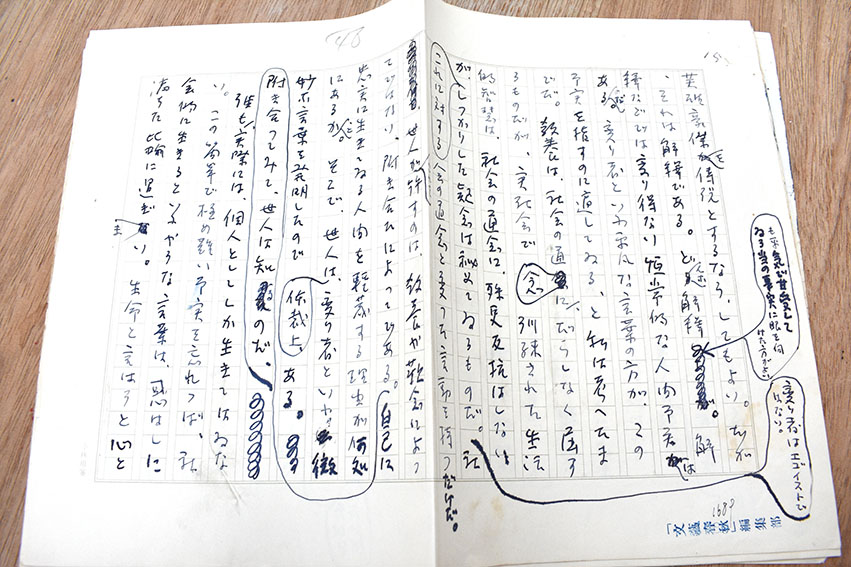 英雄豪傑 とするなら、してもよい。だが
も平気で甘受して
ゐる当の事実に眼を向
けた方がよい。
変り者はエゴイストで
はない。
、それは解釈である。どんな解釈 解
釈などでは変り得ない恒常的な人間事実は
ある。変り者といふ平凡な言葉の方が、この
事実を指すのに適してゐる、と私は考へたま
でだ。教養は、社会の通念に、だらしなく屈す
るものだが、実社会で訓練された生活
的智慧は、社会の通念に、殊更反抗はしない
が、しつかりした疑念は秘めてゐるものだ。社
これに対する 会の通念と変つた言動を持つだけだ。
世人が許すのは、教養や観念によつ
てではない、附き合ひによつてである。自己に
忠実に生きてゐる人間を軽蔑する理由が何処
にあるか。そこで、世人は、変り者といふ微
妙な言葉を発明したので 体裁上、ある。
附き合つてみて、世人は知るのだ。
も、実際には、個人としてしか生きてはゐな
い。この簡単で極め難い事実を忘れ 、社
会的に生きるといふやうな言葉は、 に
満ちた比喩に過ぎない。生命と言はうと心と
「文藝春秋」編集部